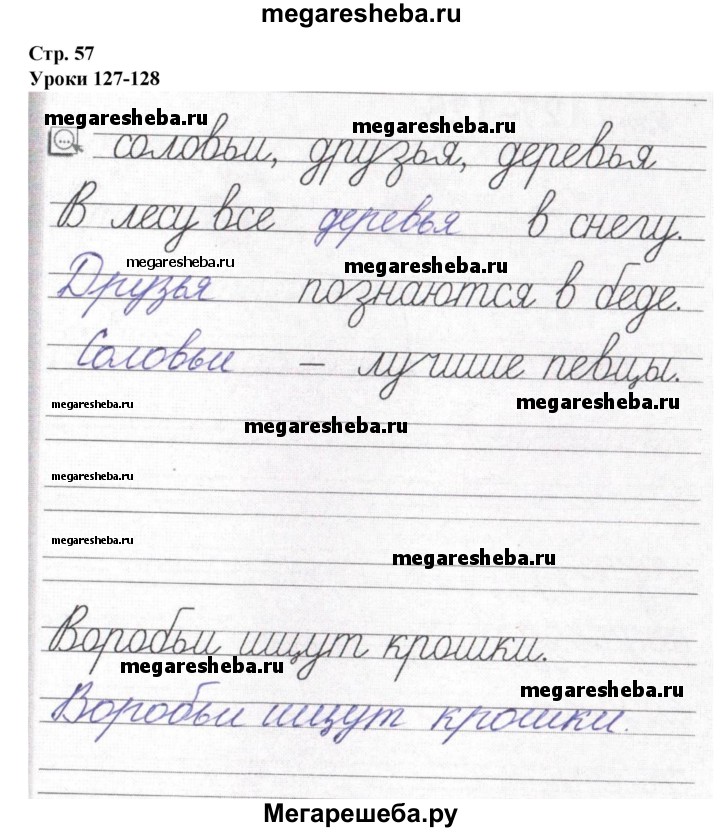 megaresheba.ru
Стр. 57
Уроки 127-128
megaresheba.ru
megaresheba.ru
соловьи, друзья, деревья
В лесу все деревья в снегу.
megaresheba.ru
megaresheba.ru
Друзья познаются в беде.
Соловьи – лучшие певцы.
megaresheba.ru
megaresheba.ru
megaresheba.ru
megaresheba.ru
megaresheba.ru
megaresheba.ru
Воробьи ищут крошки.
megaresheba.ru
megaresheba.ru
Воробьи ищут крошки.
Мегарешеба.ру